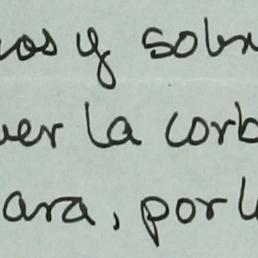 os y sobr
ver la corb
ara, porl